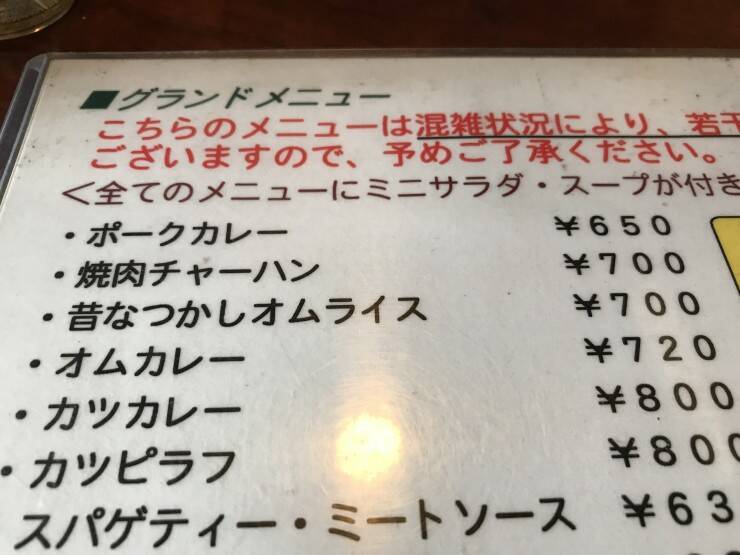 ■グランドメニュー
こちらのメニューは混雑状況により、若干
ございますので、予めご了承ください。
＜全てのメニューにミニサラダ・スープが付き
・ポークカレー ￥６５０
・焼肉チャーハン ￥７００
・昔なつかしオムライス ￥７００
・オムカレー ￥７２０
・カツカレー ￥８００
・カツピラフ ￥８００
スパゲティー・ミートソース ￥６３